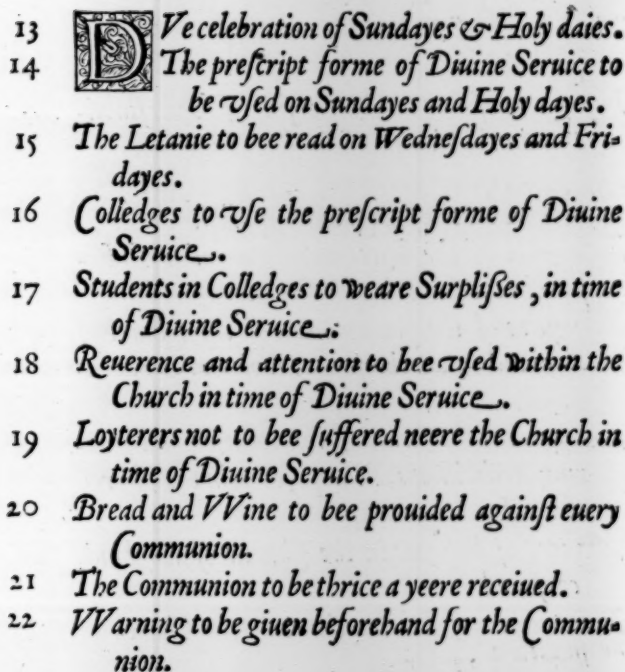 13 DVe celebration of Sundayes & Holy daies.
14 The preſcript forme of Diuine Seruice to
be vſed on Sundayes and Holy dayes.
15 The Letanie to bee read on Wedneſdayes and Fri-
dayes.
16 Colledges to vſe the preſcript forme of Diuine
Seruice.
17 Students in Colledges to weare Surpliſſes, in time
of Diuine Seruice:
18 Reuerence and attention to bee vſed within the
Church in time of Diuine Seruice.
19 Loyterers not to bee ſuffered neere the Church in
time of Diuine Seruice.
20 Bread and VVine to bee prouided againſt euery
Communion.
21 The Communion to be thrice a yeere receiued.
22 VVarning to be giuen beforehand for the Commu-
nion.